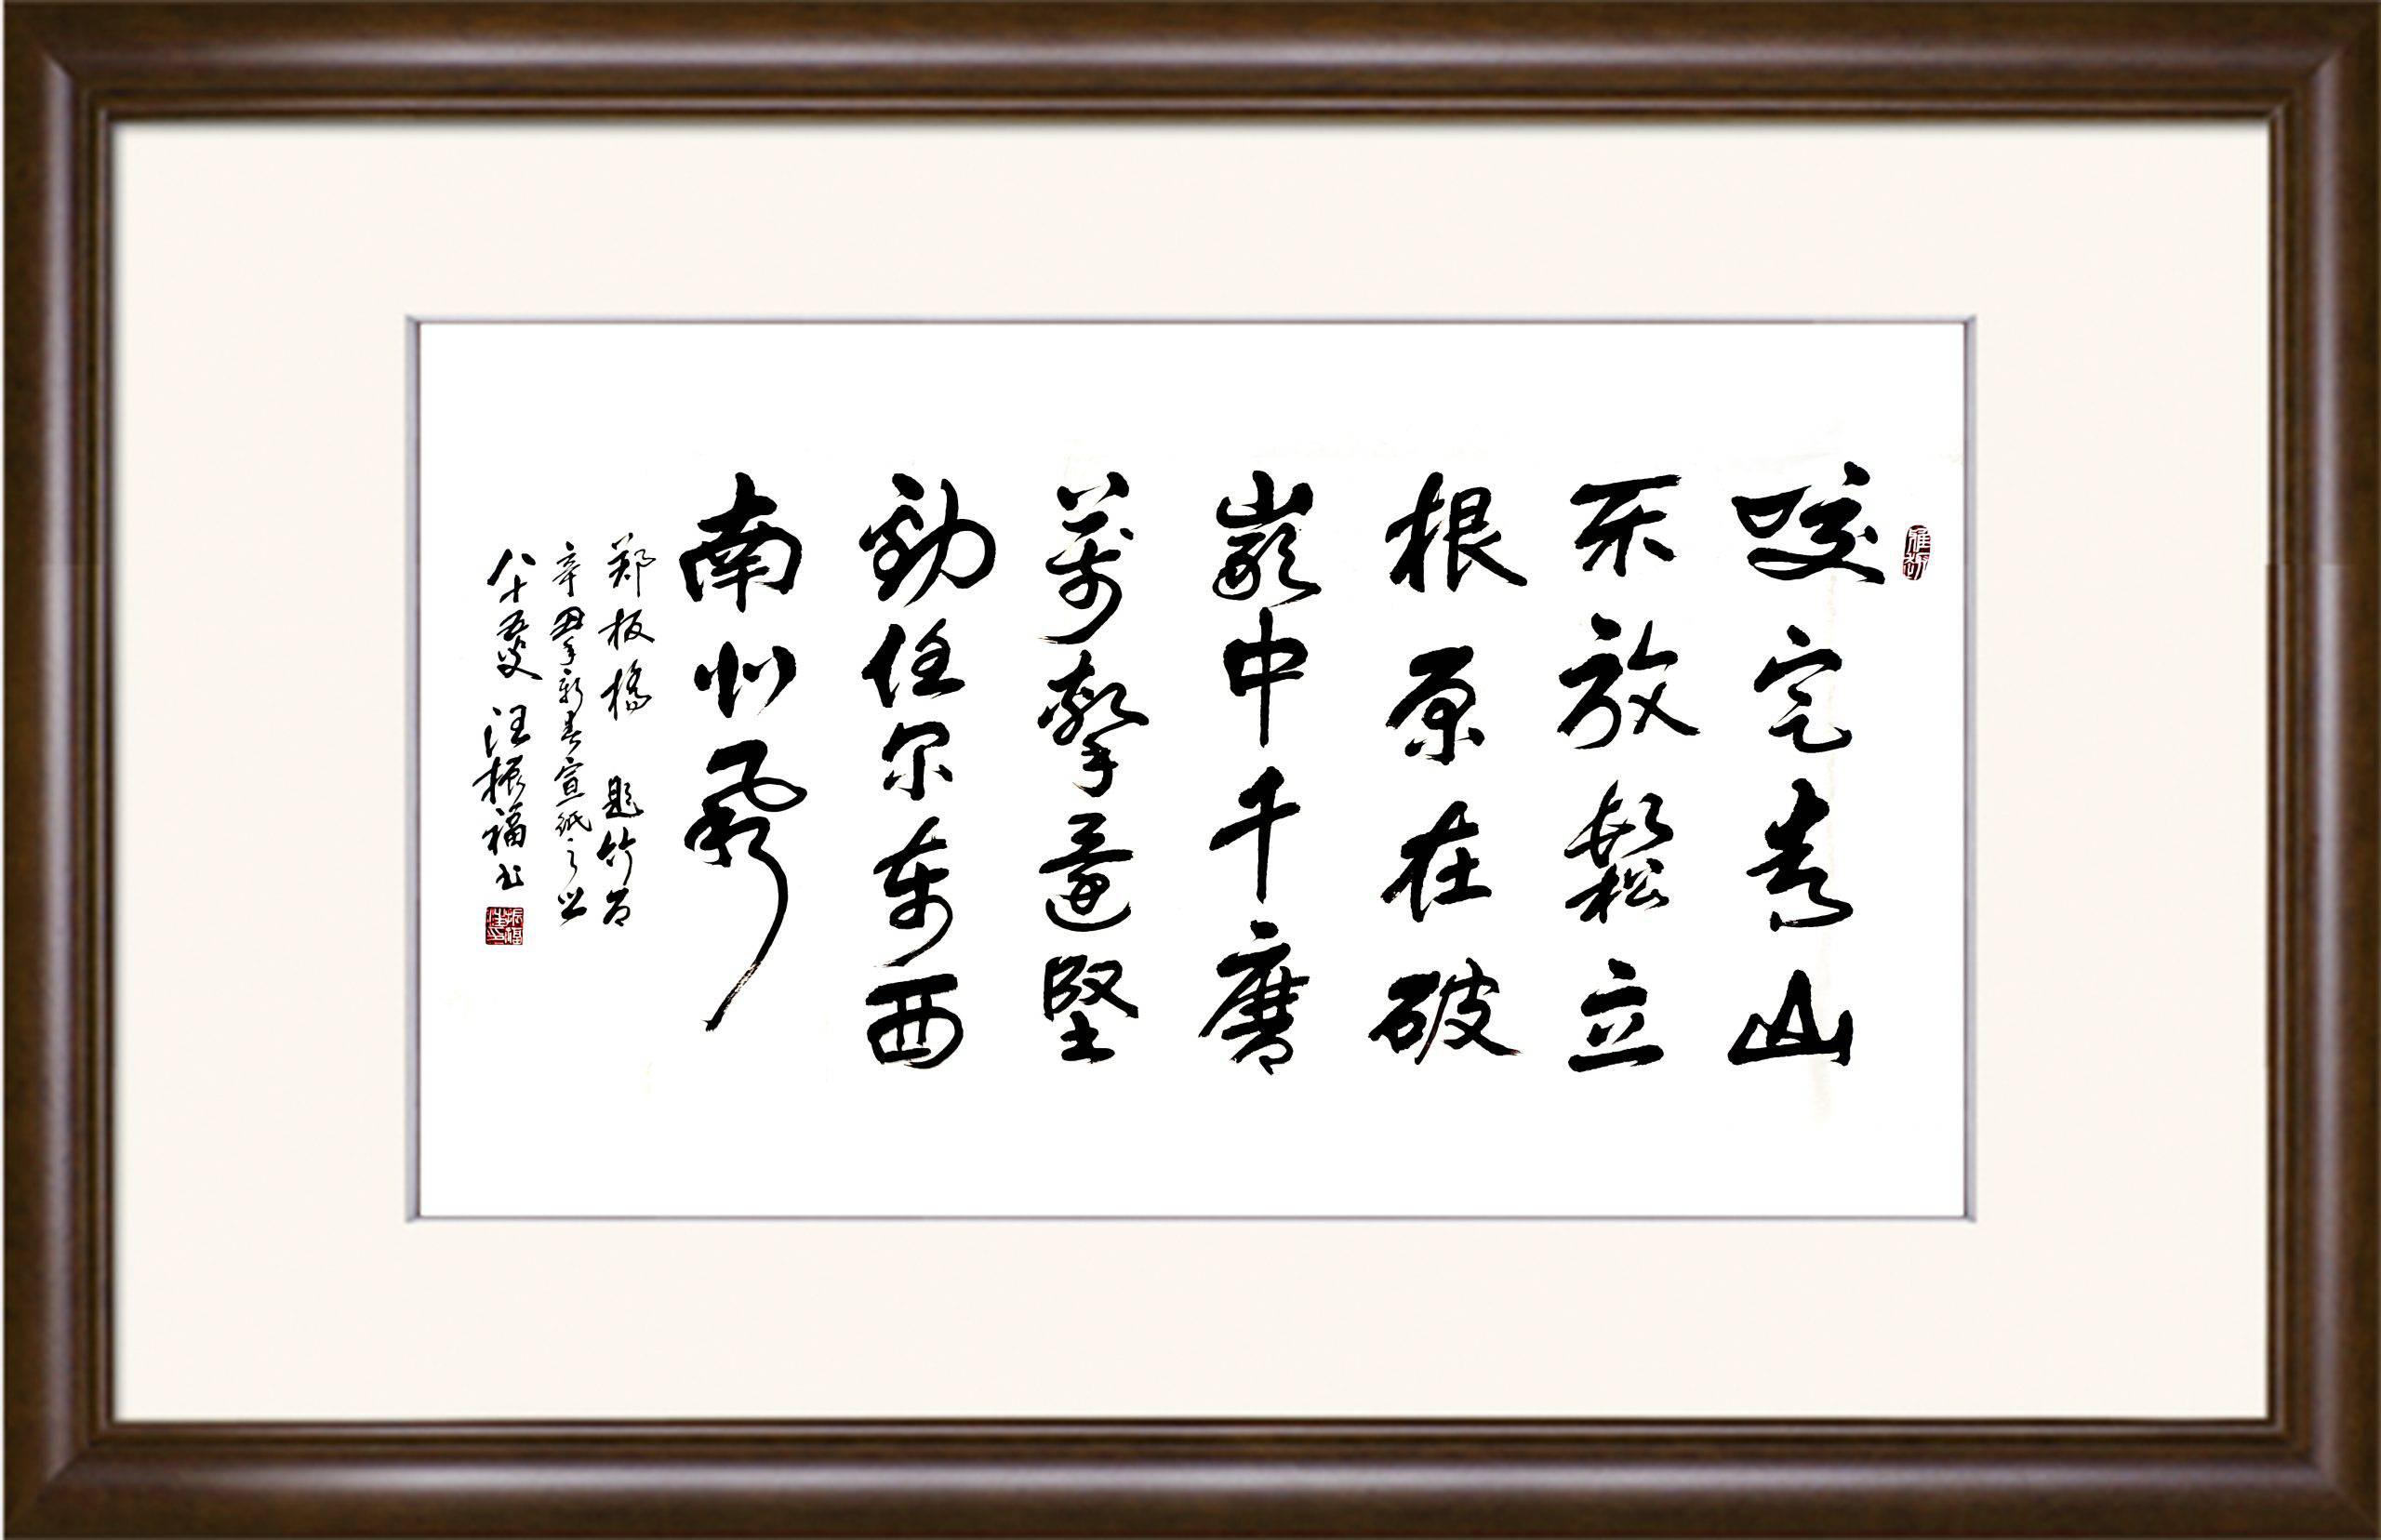 咬定青山
不放鬆立
根原在破
巖中千磨
萬擊還堅
勁任尔东西
南北風
郑板橋 題竹石
辛丑年新春宣紙之出
八十五叟 汪振福书
振福
汪印